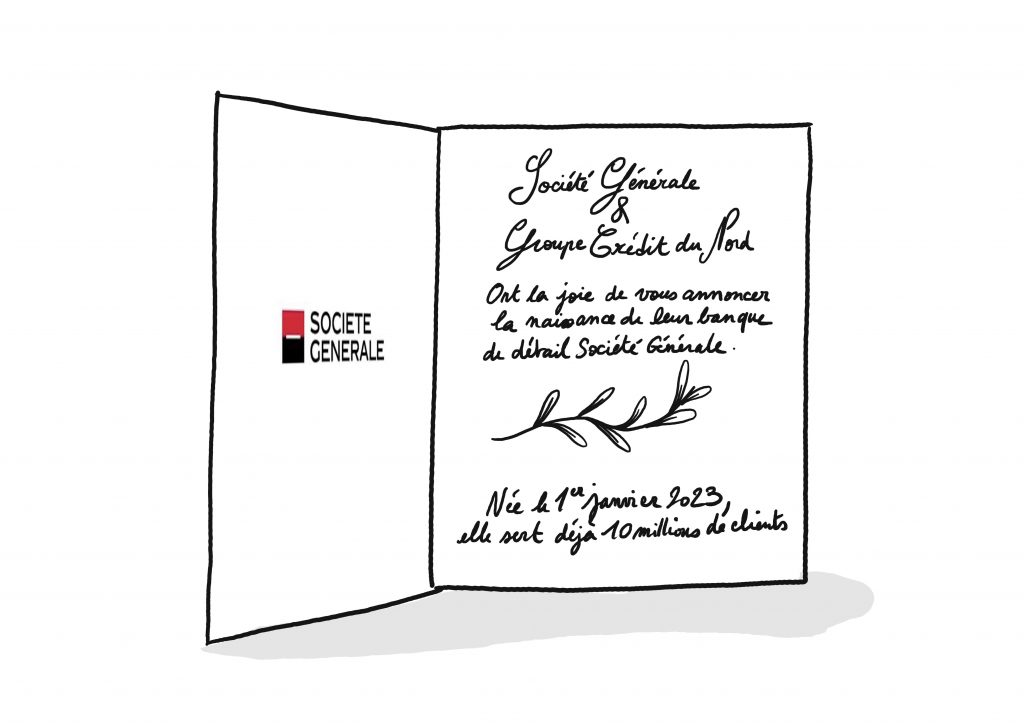 SOCIETE
GENERALE
Société Générale
&
Groupe Crédit du Nord
Ont la joie de vous annoncer
la naissance de leur banque
de détail Société Générale.
Née le 1er janvier 2023,
elle sert déjà 10 millions de clients